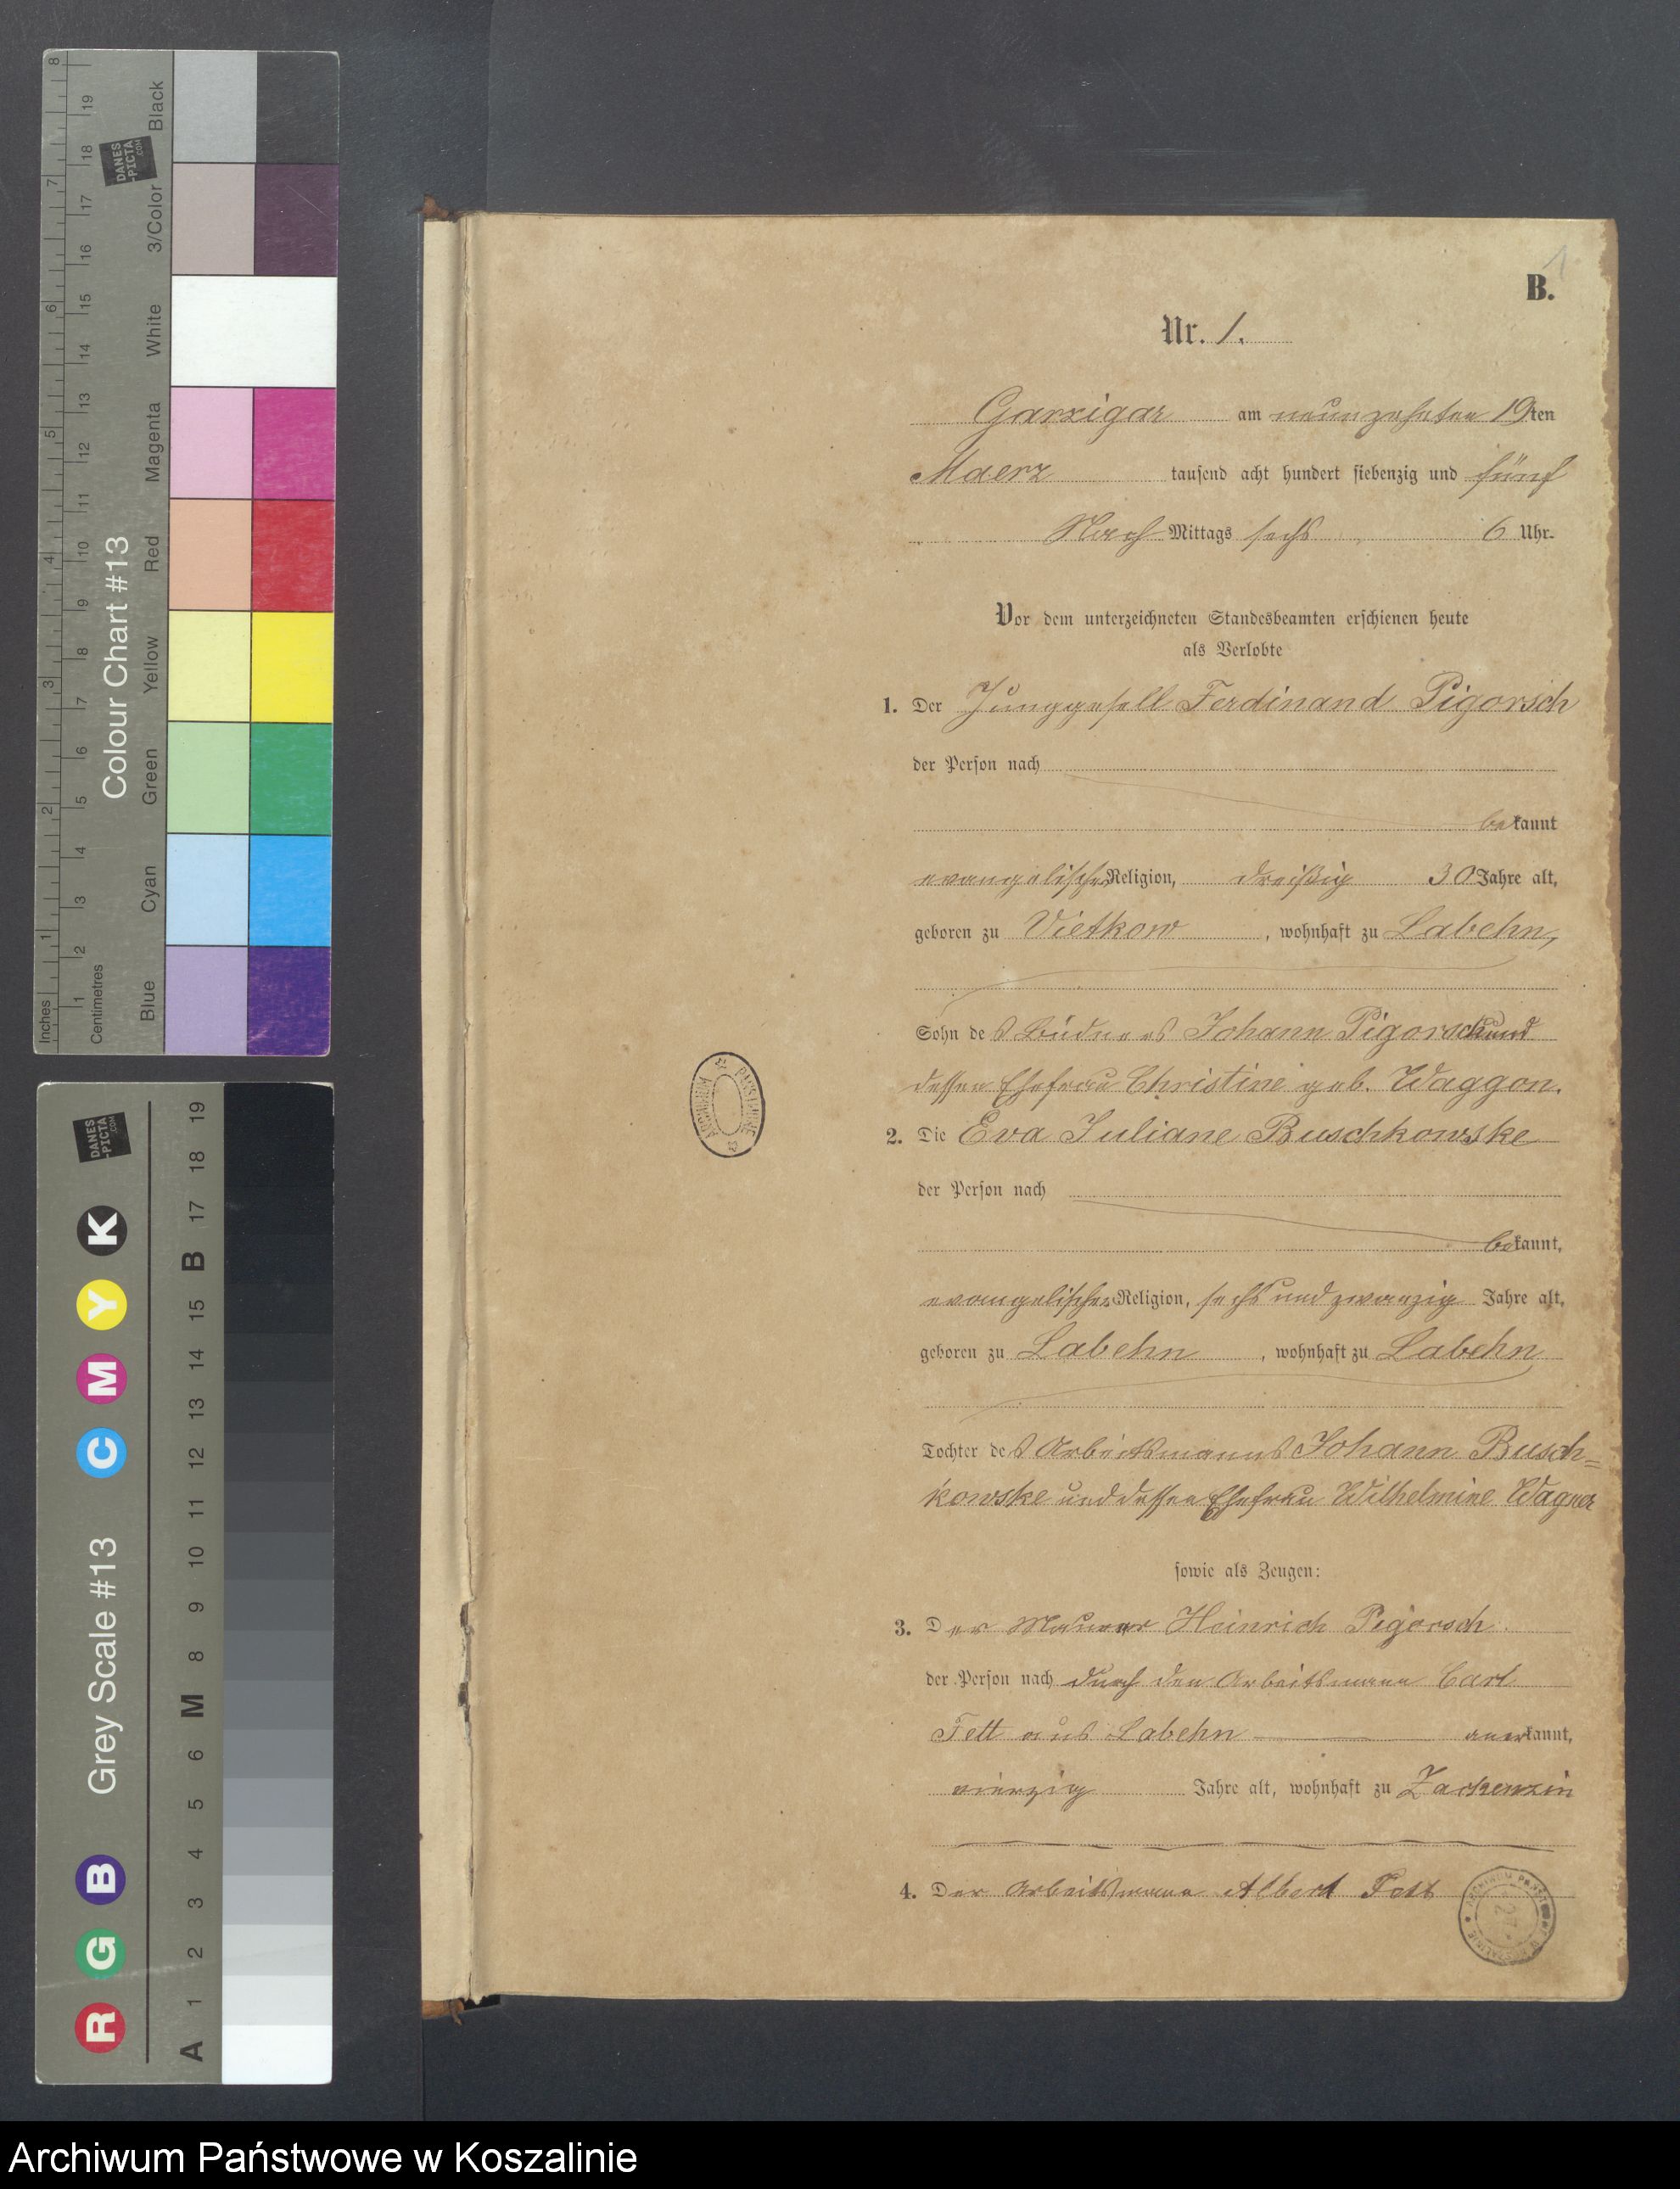 B.
1
Nr. 1.
Garzigar am neunzehnten 19ten
Maerz tausend acht hundert siebenzig und fünf
Nach Mittags sechs 6 Uhr.
Vor dem unterzeichneten Standesbeamten erschienen heute
als Verlobte
1. Der Junggesell Ferdinand Pigorsch
der Person nach
bekannt
evangelischer Religion, dreißig 30 Jahre alt,
geboren zu Vietkow, wohnhaft zu Labehn,
Sohn des Büdners Johann Pigorsch und
dessen Ehefrau Christine geb. Waggon.
2. Die Eva Juliane Buschkowske
der Person nach
bekannt,
evangelischer Religion, sechs und zwanzig Jahre alt,
geboren zu Labehn, wohnhaft zu Labehn,
Tochter des Arbeitsmanns Johann Busch=
kowske und dessen Ehefrau Wilhelmine Wagner
sowie als Zeugen:
3. Der Maurer Heinrich Pigorsch
der Person nach durch den Arbeitsmann Carl
Fett aus Labehn anerkannt,
vierzig Jahre alt, wohnhaft zu Zackenzin
4. Der Arbeitsmann Albert Fett
ARCHIWUM PAŃSTWOWE
Colour Chart #13
Inches 1 2 3 4 5 6 7 8
Centimetres 1 2 3 4 5 6 7 8 9 10 11 12 13 14 15 16 17 18 19
Blue Cyan Green Yellow Red Magenta White 3/Color Black
DANES
-PICTA
.COM
Grey Scale #13
R G B C M Y K
A 1 2 3 4 5 6 M 8 9 10 11 12 13 14 15 B 17 18 19
DANES
-PICTA
.COM
Archiwum Państwowe w Koszalinie